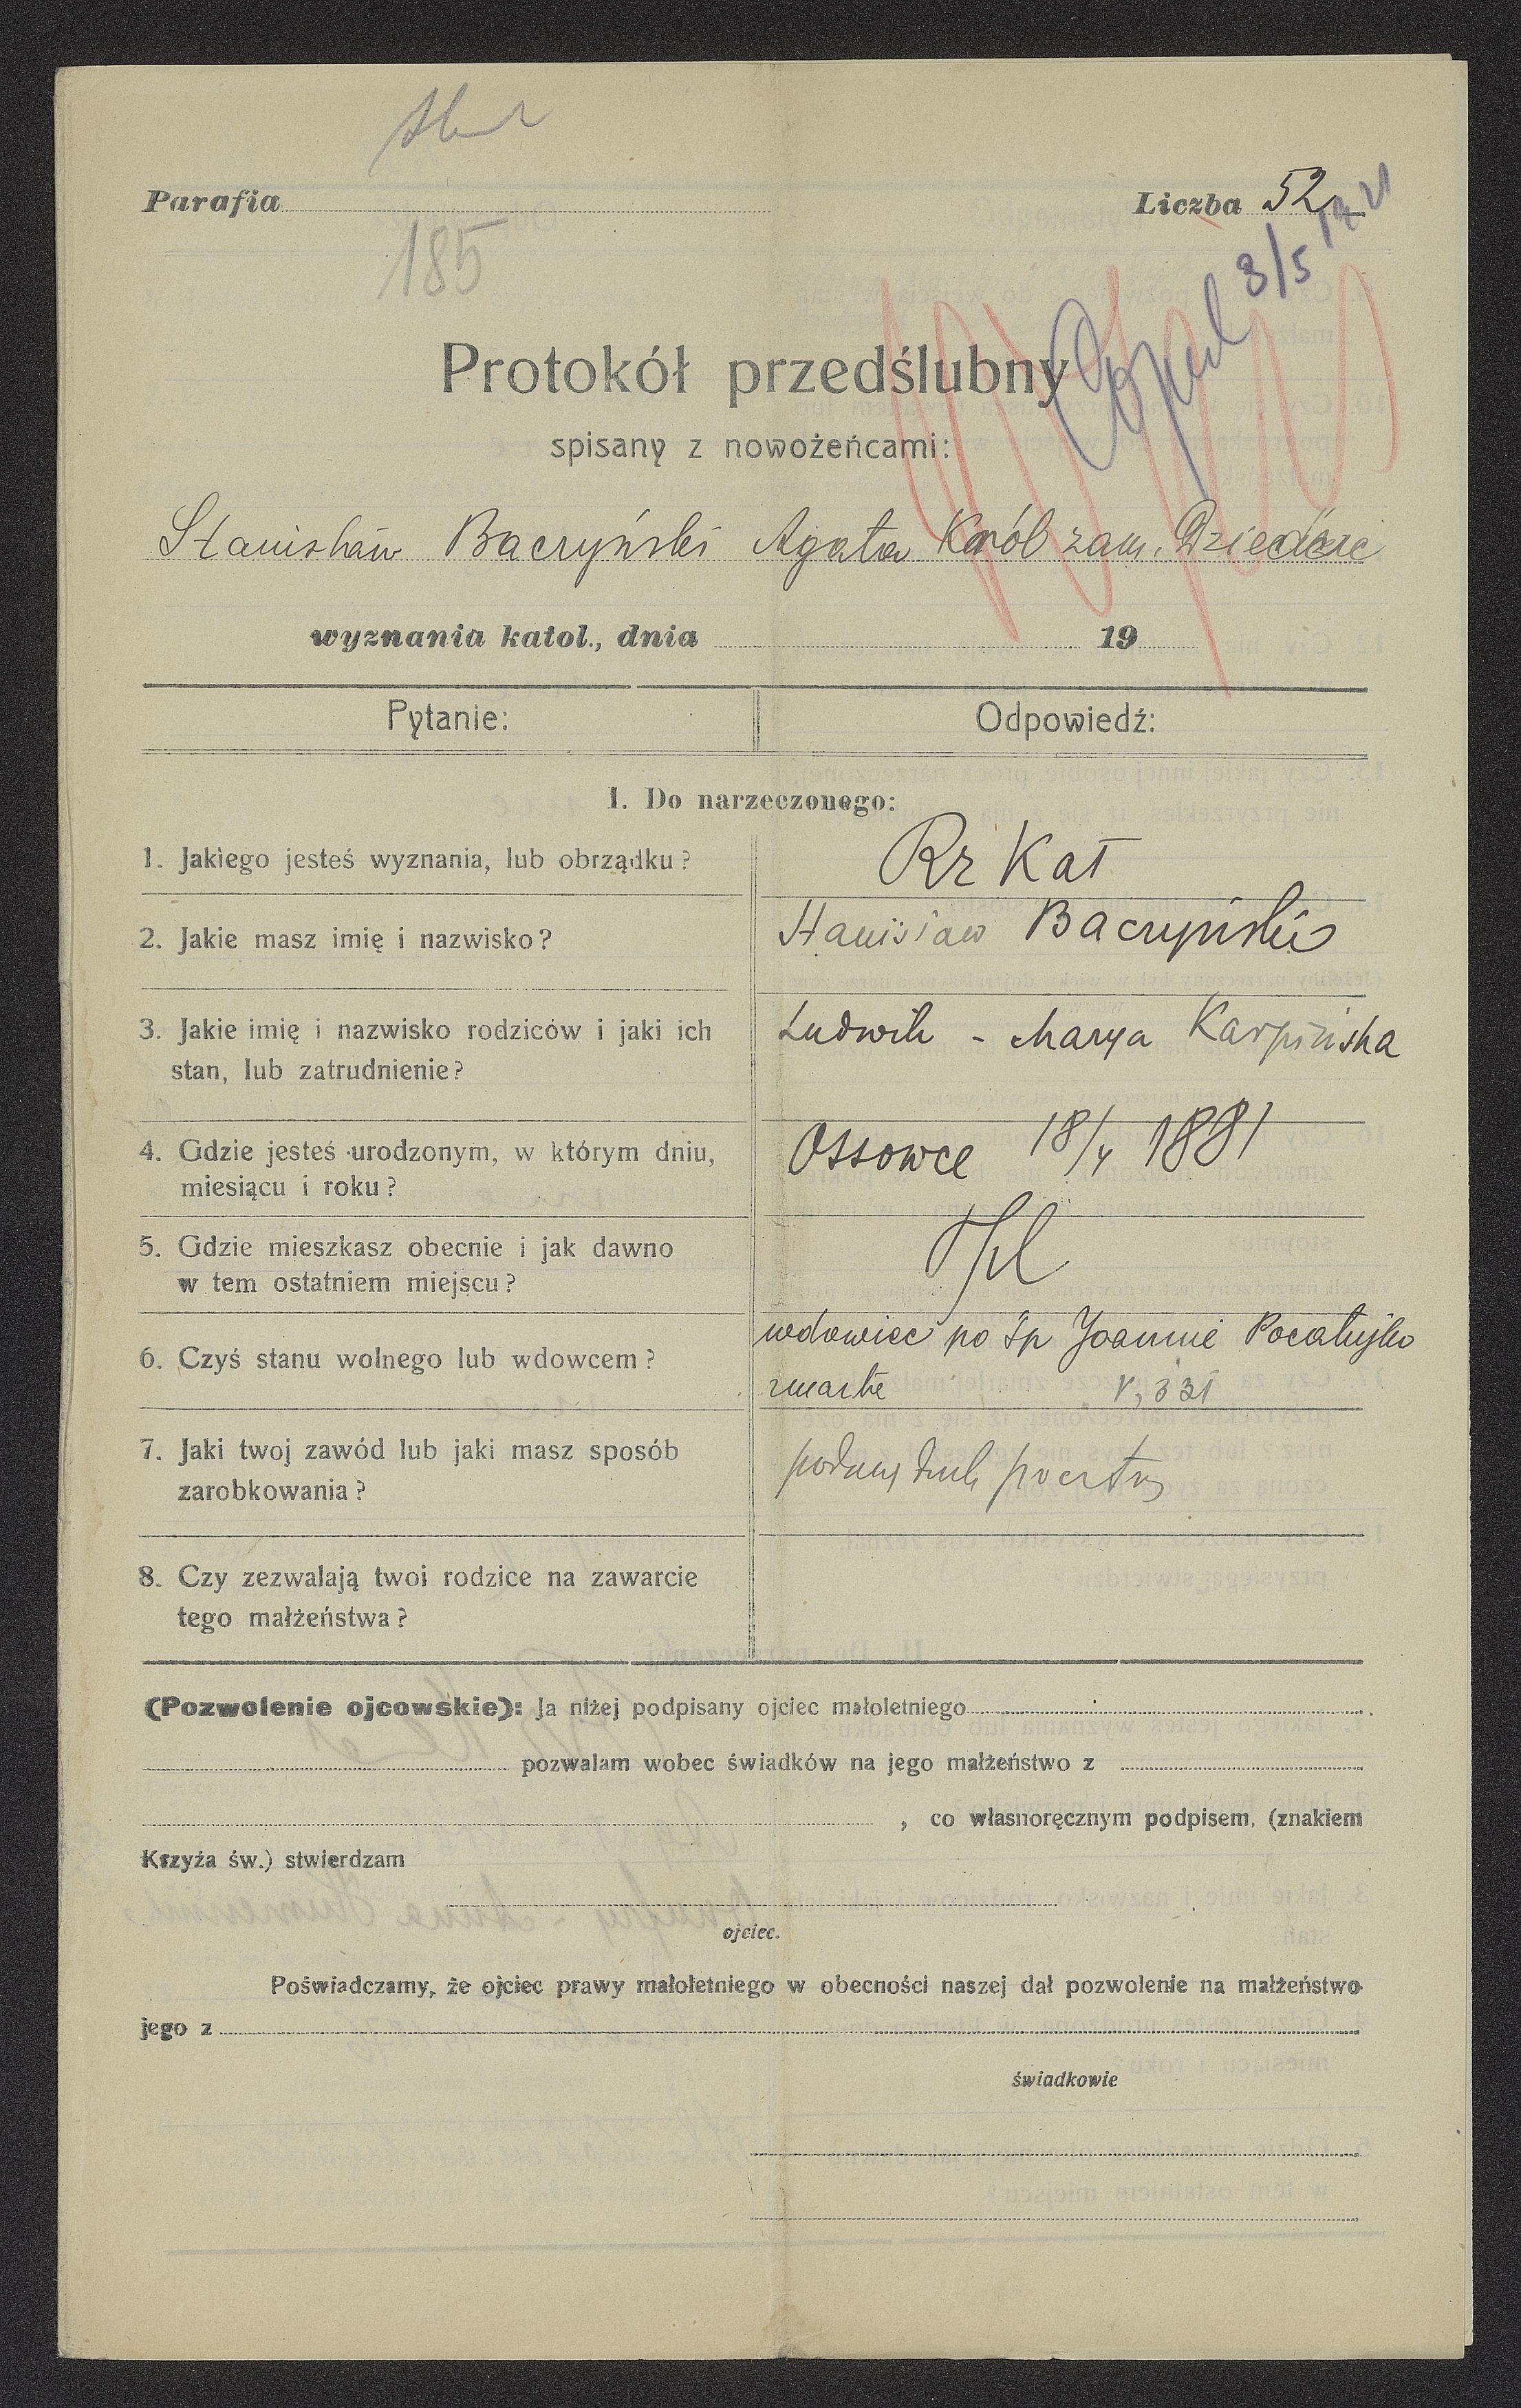 Parafia
Liczba 52
185
8/5
Protokół przedślubny
spisany z nowożeńcami:
Stanisław Baczyński Agata Król zam. Dziedzic
wyznania katol., dnia 19
Pytanie: Odpowiedź:
I. Do narzeczonego:
1. Jakiego jesteś wyznania, lub obrządku?
Rz Kat
2. Jakie masz imię i nazwisko?
Stanisław Baczyński
3. Jakie imię i nazwisko rodziców i jaki ich
stan, lub zatrudnienie?
Ludwik - Marya Karpińska
4. Gdzie jesteś urodzonym, w którym dniu,
miesiącu i roku?
Ossowce 18/4 1881
5. Gdzie mieszkasz obecnie i jak dawno
w tem ostatniem miejscu?
6. Czyś stanu wolnego lub wdowcem?
wdowiec po śp Joannie
zmarłe
7. Jaki twoj zawód lub jaki masz sposób
zarobkowania?
8. Czy zezwalają twoi rodzice na zawarcie
tego małżeństwa?
(Pozwolenie ojcowskie): Ja niżej podpisany ojciec małoletniego
pozwalam wobec świadków na jego małżeństwo z
, co własnoręcznym podpisem, (znakiem
Krzyża św.) stwierdzam
ojciec.
Poświadczamy, że ojciec prawy małoletniego w obecności naszej dał pozwolenie na małżeństwo
jego z
świadkowie